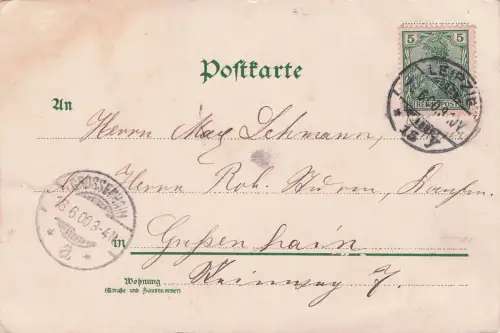 5 5
REICHSPOST
LEIPZIG
Postkarte
An
Herrn Max Lehmann,
Herrn Rob. Sturm, Kaufm.
GROSSENHAIN
18 6 00 3-4 N
a.
in Großenhain
Wohnung
(Straße und Hausnummer)
Weinweg 7.